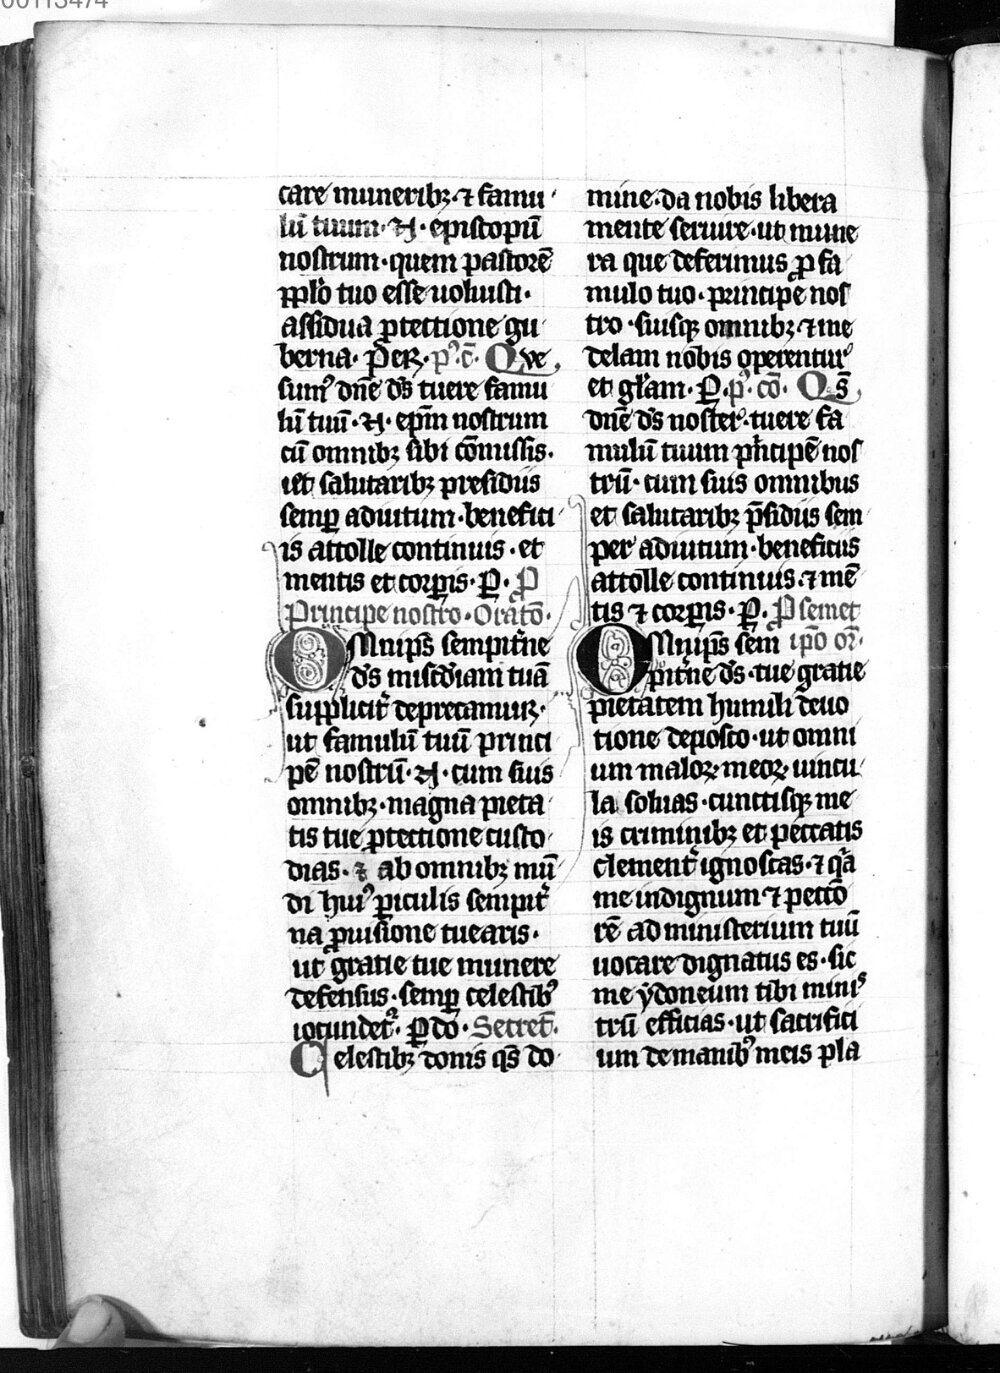 00113474
care muneribꝫ ⁊ famu
lū tuum · N · episcopū
nostrum · quem pastorē
pplo tuo esse uoluisti ·
assidua ꝓtectione gu
berna · Per · p' c̄ · Que
sum' dn̄e ds̄ tuere famu
lū tuū · N · ep̄m nostrum
cū omnibꝫ sibi cōmissis ·
et salutaribꝫ presidiis
semꝑ adiutum · benefici
is attolle continuis · et
mentis et corꝑis · P · P
Principe nostro · Oratō ·
Omnip̄s sempit̄ne
ds̄ misc̄diam tuā
supplicit̄ deprecamur ·
ut famulū tuū princi
pē nostrū · N · cum suis
omnibꝫ · magna pieta
tis tue ꝓtectione custo
dias · ⁊ ab omnibꝫ mū
di hui' ꝑiculis sempit̄
na ꝓuisione tuearis ·
ut gratie tue munere
defensus · semꝑ celestib'
iocundet' · P dō · Secret̄ ·
Celestibꝫ donis qs̄ do
mine · da nobis libera
mente seruire · ut mune
ra que deferimus ꝓ fa
mulo tuo · principe nos
tro · suisqꝫ omnibꝫ · ⁊ me
delam nobis operentur
et gl̄am · P · p' cō · Qs̄
dn̄e ds̄ noster · tuere fa
mulū tuum pⁱncipē nos
trū · cum suis omnibus
et salutaribꝫ p̄sidiis sem
per adiutum · beneficiis
attolle continuis · ⁊ mē
tis ⁊ corꝑis · P · P semet
Omnip̄s sem ipō or̄ ·
pit̄ne ds̄ · tue gratie
pietatem humili deuo
tione deposco · ut omni
um maloꝝ meoꝝ uincu
la soluas · cunctisqꝫ me
is criminibꝫ et peccatis
clement̄ ignoscas · ⁊ qᵃ
me indignum ⁊ peccō
rē ad ministerium tuū
uocare dignatus es · sic
me ydoneum tibi minis
trū efficias · ut sacrifici
um de manib' meis pla